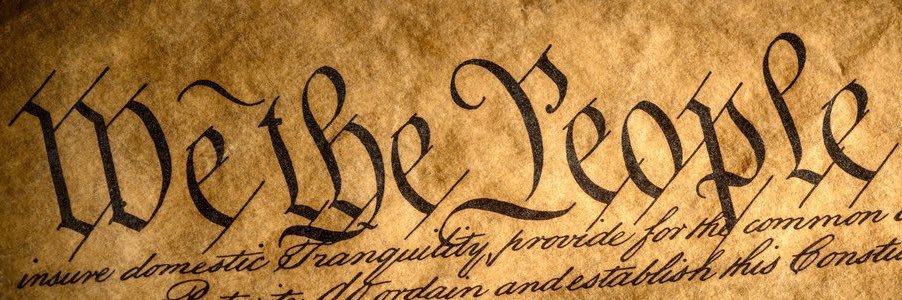 We the People
insure domestic Tranquility, provide for the common
ordain and establish this